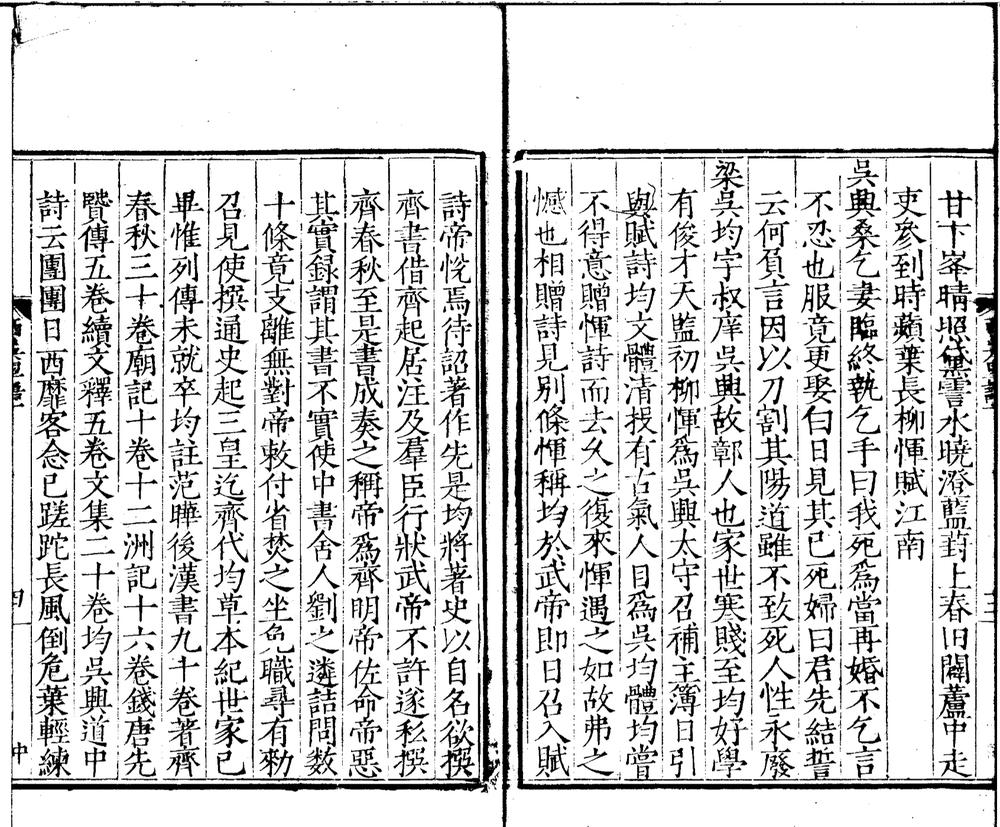 甘下峯晴照代黒雲水曉澄藍葑上春田闢蘆中走
吏參到時蘋葉長柳惲賦江南
吳興桑乞妻臨終執乞手曰我死為當再婚不乞言
不忍也服竟更娶白日見其已死婦曰君先結誓
云何負言因以刀割其陽道雖不致死人性永廢
梁吳均字叔庠吳興故鄣人也家世寒賤至均好學
有俊才天監初柳惲為吳興太守召補主簿日引
與賦詩均文體清拔有古氣人目為吳均體均嘗
不得意贈惲詩而去乆之復來惲遇之如故弗之
憾也相贈詩見别條惲稱均於武帝即日召入賦
詩帝悅焉待詔著作先是均將著史以自名欲撰
齊書借齊起居注及羣臣行狀武帝不許遂私撰
齊春秋至是書成奏之稱帝為齊明帝佐命帝惡
其實録謂其書不實使中書舍人劉之遴詰問數
十條竟支離無對帝敕付省焚之坐免職尋有勑
召見使撰通史起三皇迄齊代均草本紀世家已
畢惟列傳未就卒均註范曄後漢書九十卷著齊
春秋三十卷廟記十卷十二洲記十六卷錢唐先
賢傳五卷續文釋五卷文集二十卷均吳興道中
詩云團團日西靡客念已蹉跎長風倒危葉輕練